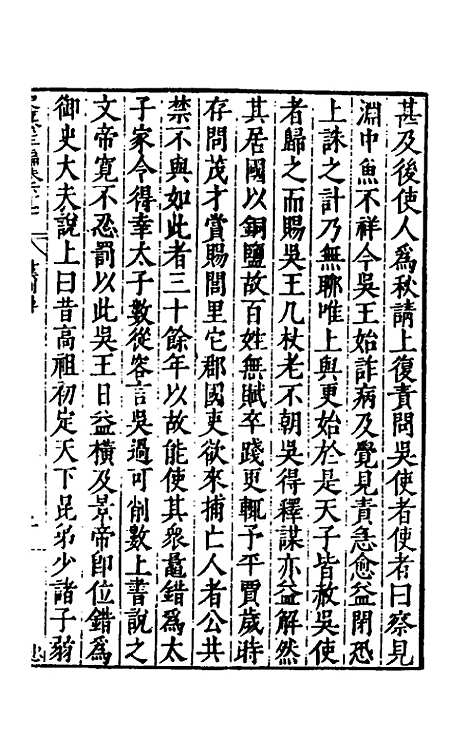 甚及後使人爲秋請上復責問吳使者使者曰察見
淵中魚不祥今吳王始詐病及覺見責急愈益閉恐
上誅之計乃無聊唯上與更始於是天子皆赦吳使
者歸之而賜吳王几杖老不朝吳得釋謀亦益解然
其居國以銅鹽故百姓無賦卒踐更輒予平賈歲時
存問茂才賞賜閭里它郡國吏欲來捕亡人者公共
禁不與如此者三十餘年以故能使其衆鼂錯爲太
子家令得幸太子數從容言吳過可削數上書說之
文帝寬不忍罰以此吳王日益橫及景帝卽位錯爲
御史大夫說上曰昔高祖初定天下昆弟少諸子弱